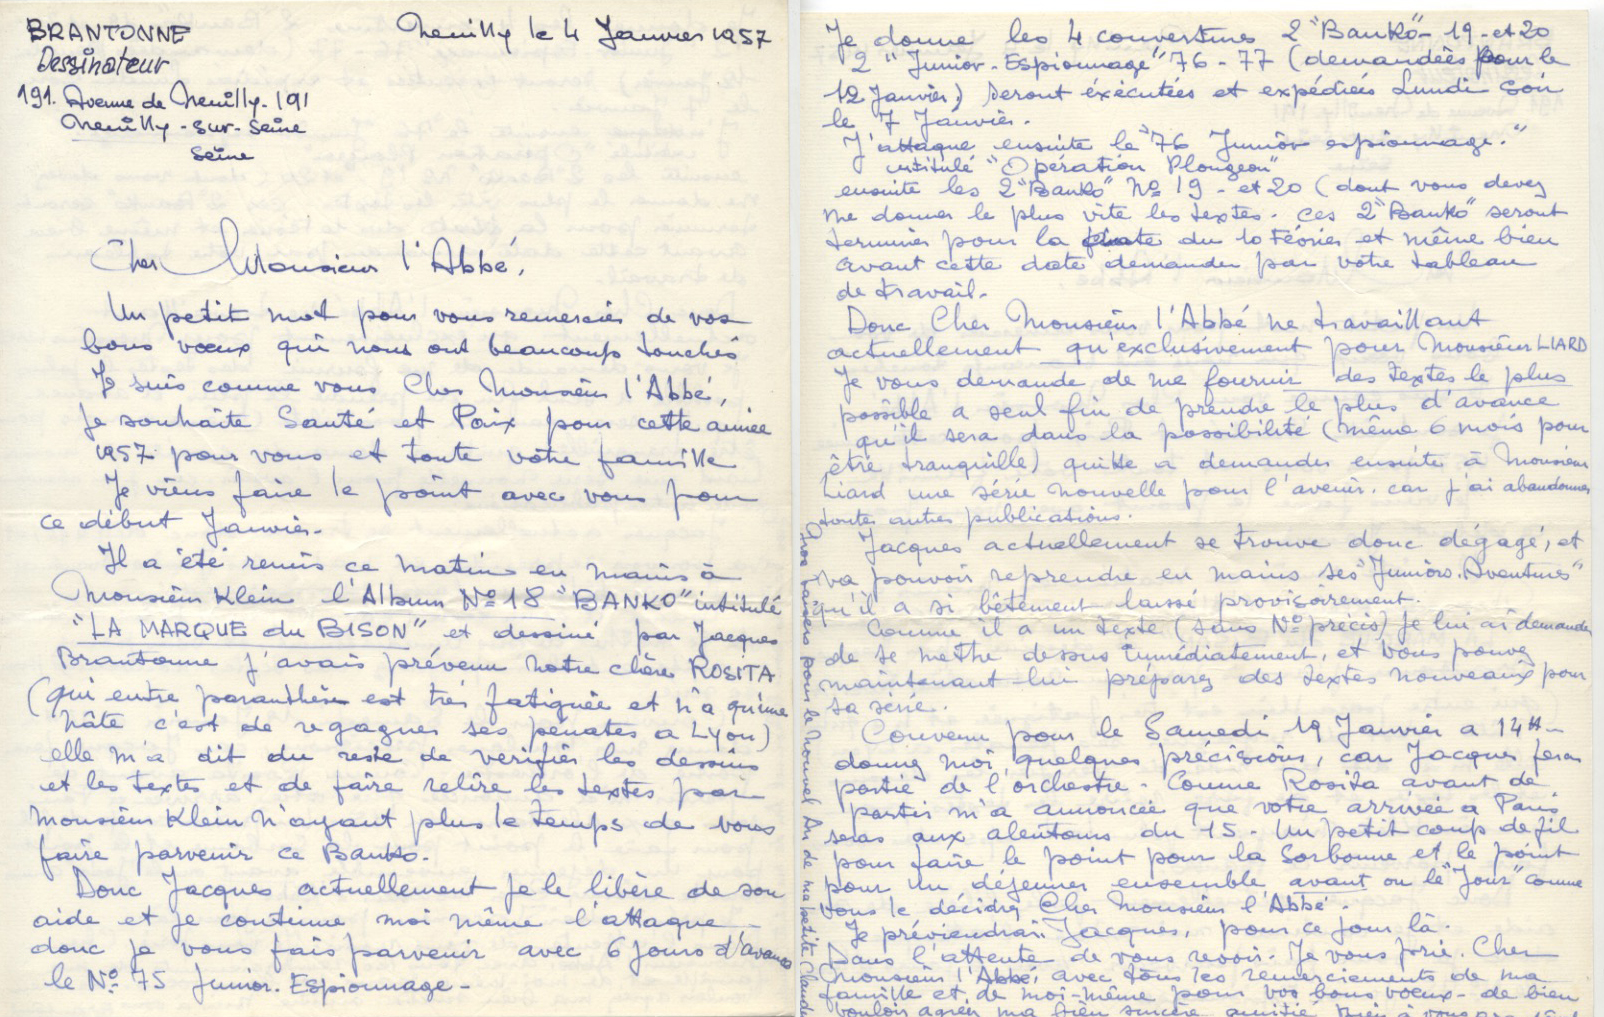 BRANTONNE
Dessinateur
191. Avenue de Neuilly. 191
Neuilly-sur-Seine
Seine
Neuilly le 4 Janvier 1957
Cher Monsieur l'Abbé,
Un petit mot pour vous remercier de vos
bons vœux qui nous ont beaucoup touchés
Je suis comme vous Cher Monsieur l'Abbé,
je souhaite Santé et Paix pour cette année
1957 pour vous et toute votre famille
Je viens faire le point avec vous pour
ce début Janvier.
Il a été remis ce matin en mains à
Monsieur Klein l'Album No 18 "BANKO" intitulé
"LA MARQUE du BISON" et dessiné par Jacques
Brantonne j'avais prévenu notre chère ROSITA
(qui entre paranthèse est très fatiguée et n'a qu'une
hâte c'est de regagner ses pénates a Lyon)
elle m'a dit du reste de vérifier les dessins
et les textes et de faire relire les textes par
Monsieur Klein n'ayant plus le temps de vous
faire parvenir ce Banko.
Donc Jacques actuellement je le libère de son
aide et je continue moi même l'attaque
donc je vous fais parvenir avec 6 jours d'avance
le No 75 Junior. Espionnage -
Je donne les 4 couvertures 2 "Banko" - 19 - et 20
2 "Junior - Espionnage" 76 - 77 (demandées pour le
12 Janvier) seront éxécutées et expédiées Lundi Soir
le 7 Janvier.
J'attaque ensuite le "76 Junior espionnage."
intitulé "Opération Plongeon"
ensuite les 2 "Banko" No 19 - et 20 (dont vous devez
me donner le plus vite les textes. Ces 2 "Banko" seront
terminés pour la date du 10 Février et même bien
avant cette date demander par votre tableau
de travail.
Donc Cher Monsieur l'Abbé ne travaillant
actuellement qu'exclusivement pour Monsieur LIARD
Je vous demande de me fournir des textes le plus
possible a seul fin de prendre le plus d'avance
qu'il sera dans la possibilité (même 6 mois pour
être tranquille) quitte a demander ensuite à Monsieur
Liard une série nouvelle pour l'avenir. car j'ai abandonner
toutes autres publications.
Jacques actuellement se trouve donc dégagé, et
va pouvoir reprendre en mains ses "Juniors. Aventures"
qu'il a si bêtement laissé provisoirement.
Comme il a un texte (sans No précis) je lui ai demander
de se mettre dessus immédiatement, et vous pouvez
maintenant lui préparez des textes nouveaux pour
sa série.
Convenu pour le Samedi 19 Janvier a 14H -
donnez moi quelques précisions, car Jacques fera
partie de l'orchestre. Comme Rosita avant de
partir m'a annoncée que votre arrivée a Paris
seras aux alentours du 15 - Un petit coup de fil
pour faire le point pour la Sorbonne et le point
pour un déjeuner ensemble avant ou le "Jour" comme
vous le décidez Cher Monsieur l'Abbé.
Je préviendrai Jacques, pour ce jour là.
Dans l'attente de vous revoir. Je vous prie. Cher
Monsieur l'Abbé, avec tous les remerciements de ma
famille et de moi-même pour vos bons vœux - de bien
vouloir agréer ma bien sincère amitié
gros baisers pour le Nouvel An de ma petite Claude